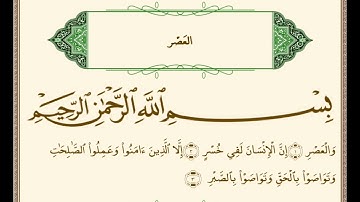 العَصْر
بِسْمِ ٱللَّهِ ٱلرَّحْمَٰنِ ٱلرَّحِيمِ
وَالْعَصْرِ ۝١ إِنَّ الْإِنْسَانَ لَفِي خُسْرٍ ۝٢ إِلَّا الَّذِينَ ءَامَنُوا۟ وَعَمِلُوا۟ الصَّٰلِحَٰتِ
وَتَوَاصَوْا۟ بِالْحَقِّ وَتَوَاصَوْا۟ بِالصَّبْرِ ۝٣